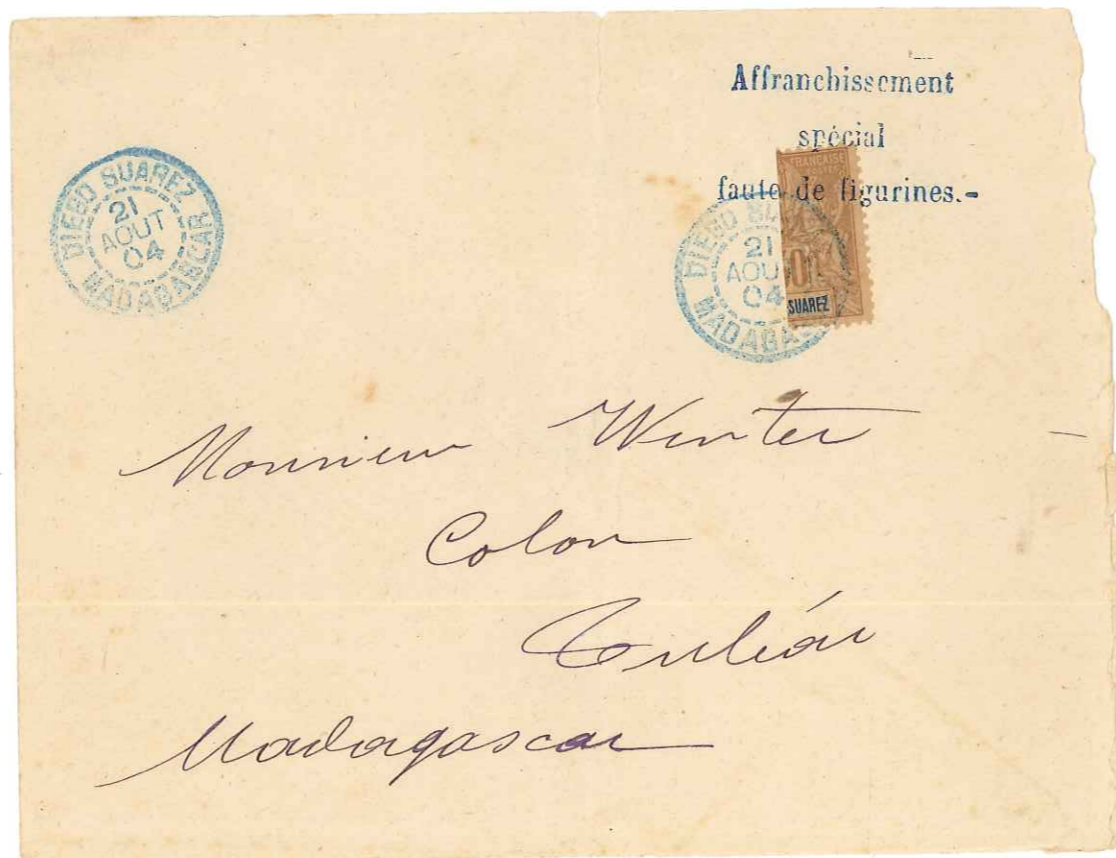 Affranchissement
spécial
faute de figurines.-
DIEGO SUAREZ
21
AOUT
04
MADAGASCAR
FRANÇAISE
DIEGO
21
AOU
04
MADAGAS
SUAREZ
Monsieur Winter
Colon
Tuléar
Madagascar